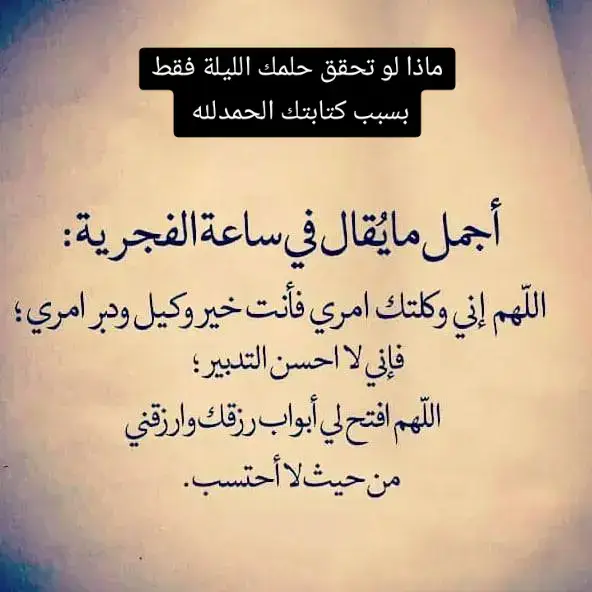 ماذا لو تحقق حلمك الليلة فقط
بسبب كتابتك الحمدلله
أجمل مايُقال في ساعة الفجرية:
اللّهم إني وكلتك امري فأنت خير وكيل ودبر امري؛
فإني لا احسن التدبير؛
اللّهم افتح لي أبواب رزقك وارزقني
من حيث لا أحتسب.